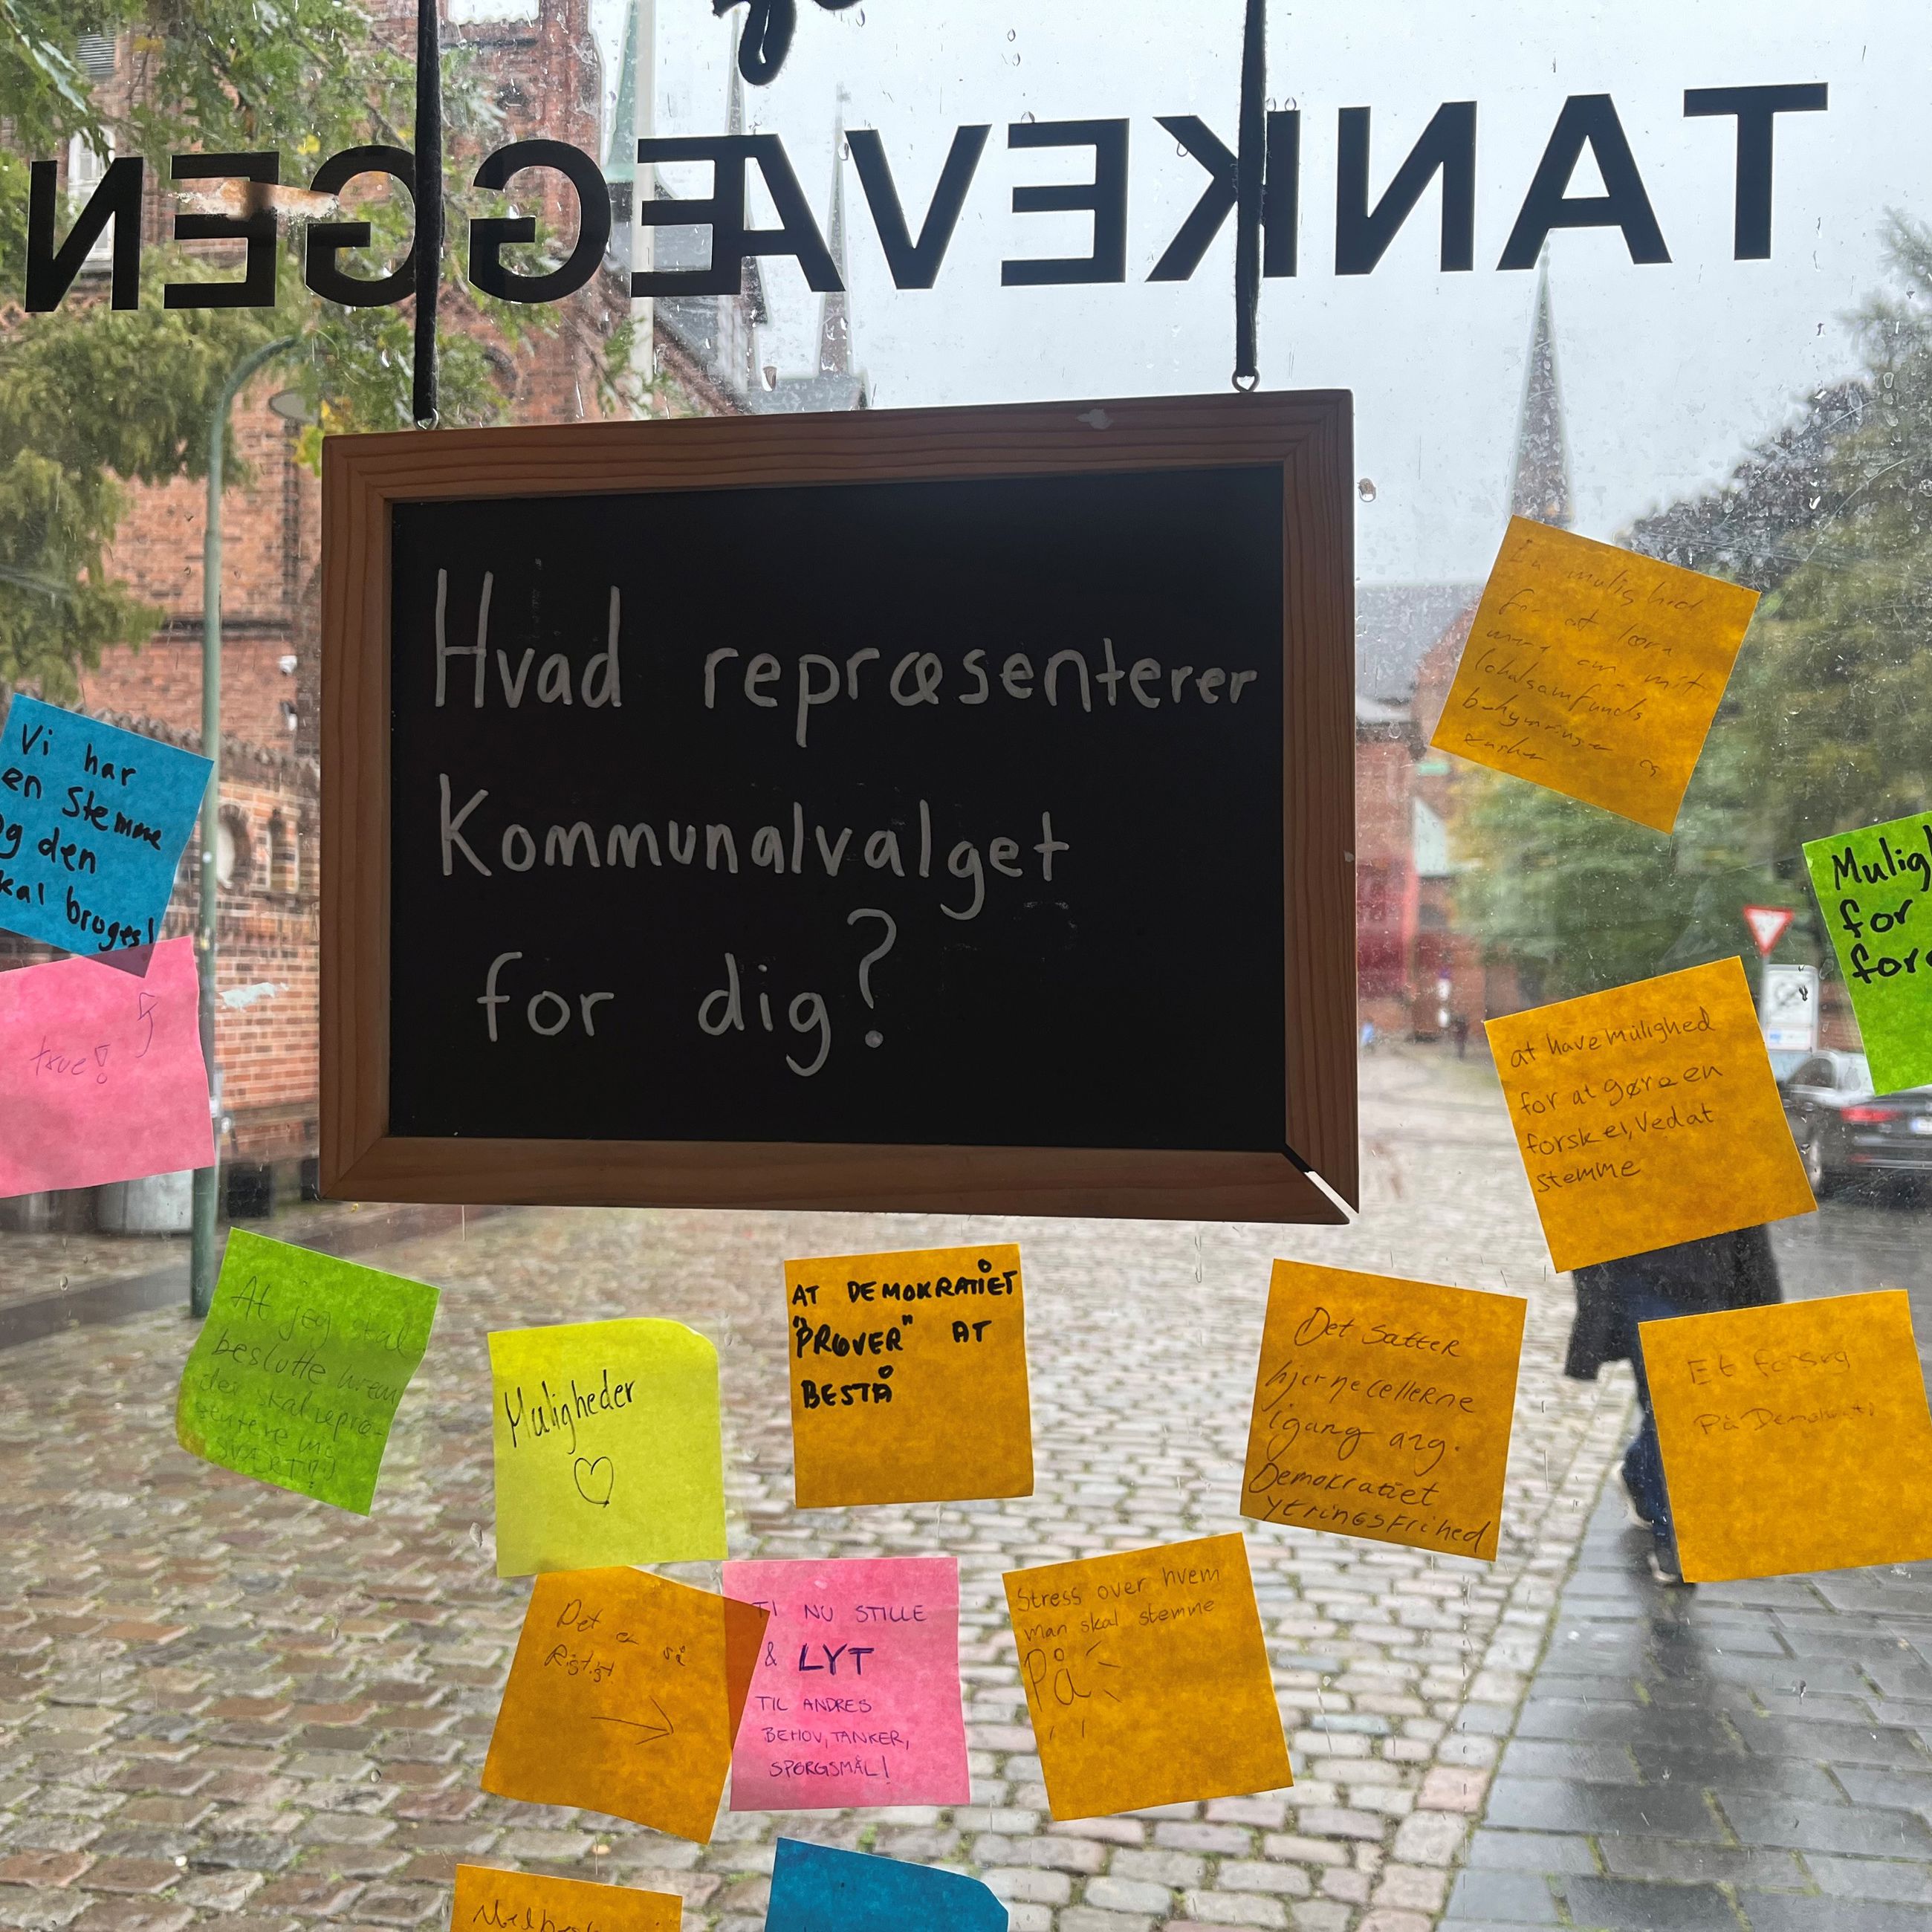 TANKEVÆGGEN
Hvad repræsenterer
Kommunalvalget
for dig?
En mulighed
for at lære
mere om mit
lokalsamfunds
bekymringer og
ønsker
Vi har
en stemme
og den
skal bruges!
true!
Mulig
for
for
at have mulighed
for at gøre en
forskel, ved at
stemme
At jeg skal
beslutte hvem
der skal repræ-
sentere mig
SVÆRT?!
Muligheder
AT DEMOKRATIET
"PRØVER" AT
BESTÅ
Det sætter
hjernecellerne
igang ang.
Demokratiet
Ytringsfrihed
Et forsøg
På Demokrati
Det er så
Rigtigt
TI NU STILLE
& LYT
TIL ANDRES
BEHOV, TANKER,
SPØRGSMÅL!
Stress over hvem
man skal stemme
På